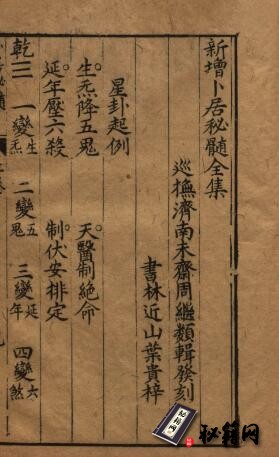 新增卜居秘髓全集
巡撫濟南未齋周繼纇輯發刻
書林近山葉貴梓
星卦起例
生炁降五鬼 天醫制絶命
延年壓六殺 制伏安排定
乾☰ 一變生炁 二變五鬼 三變延年 四變六煞
秘籍网
秘籍网